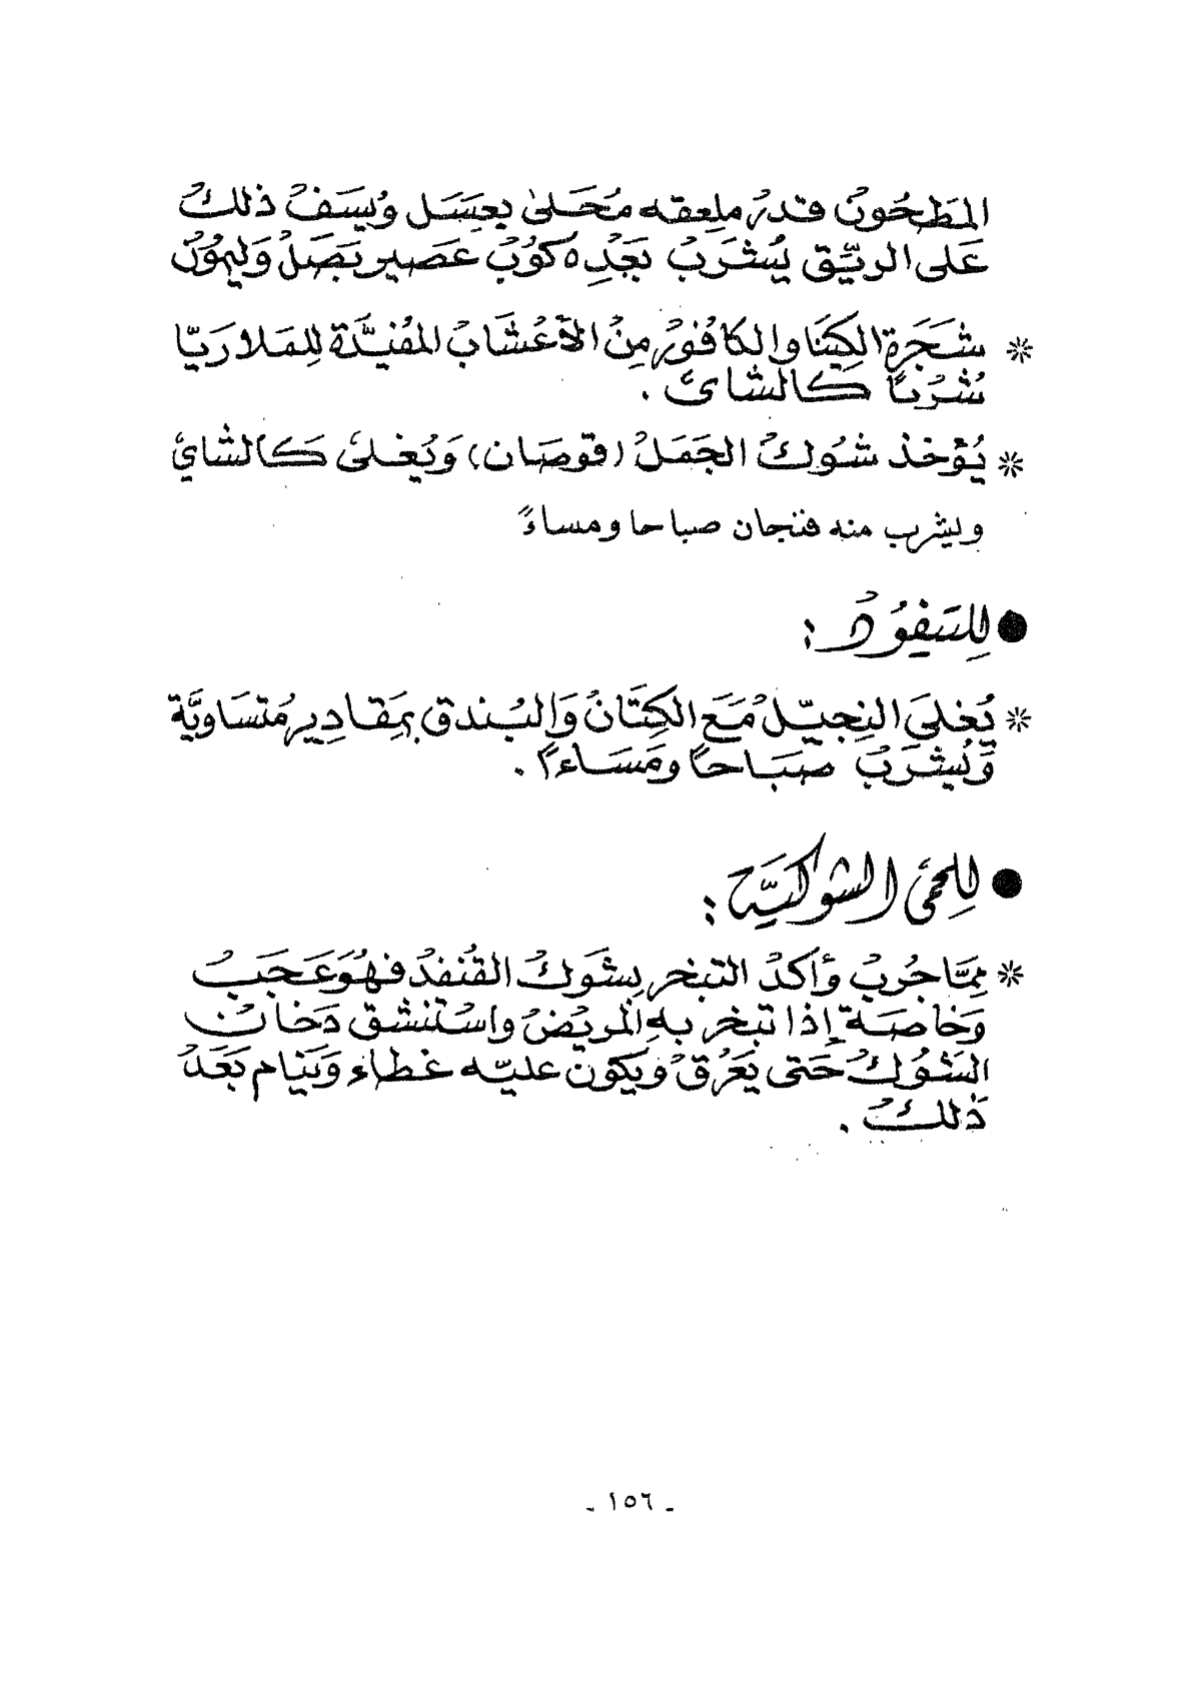 المَطحُونْ قدرْ ملعقه مُحَلىٰ بعِسَل وُيسَفْ ذلكْ
عَلى الريِّق يُشرَبْ بَعْدِه كوُبْ عَصير بَصَلْ وَليموُنْ
* شَجَرة الكِينَا والكافُورْ مِنْ الأعْشَابْ المفُيَّدة لِلمَلاَرَيّا
شُرْباً كالشاىْ .
* يُؤخذ شوُكْ الجَمَلْ (قوصَان) وَيُغلىَ كَالشايْ
ويشرب منه فنجان صباحا ومساءً
● لِلتَيفوُدْ :
* يُغلىَ النِجيّلْ مَعَ الكِتَانْ وَالبُندق بمِقَادِير مُتسَاويَّة
وَيُشرَبْ صَبَاحاً ومَسَاءاً .
● لِلحمُىَ الشوكيَّة :
* مِمّا جُربْ وأكدْ التبخر بِشَوكْ القُنفدْ فهُوَ عَجَبْ
وَخاصَة إذا تبخر بهِ المْريَضْ واسْتنشق دَخانْ
الشَوُكْ حَتى يَعْرُقْ وَيكونْ عليّه غطاء وَيَنام بَعَدْ
ذَلكْ .
- ١٥٦ -